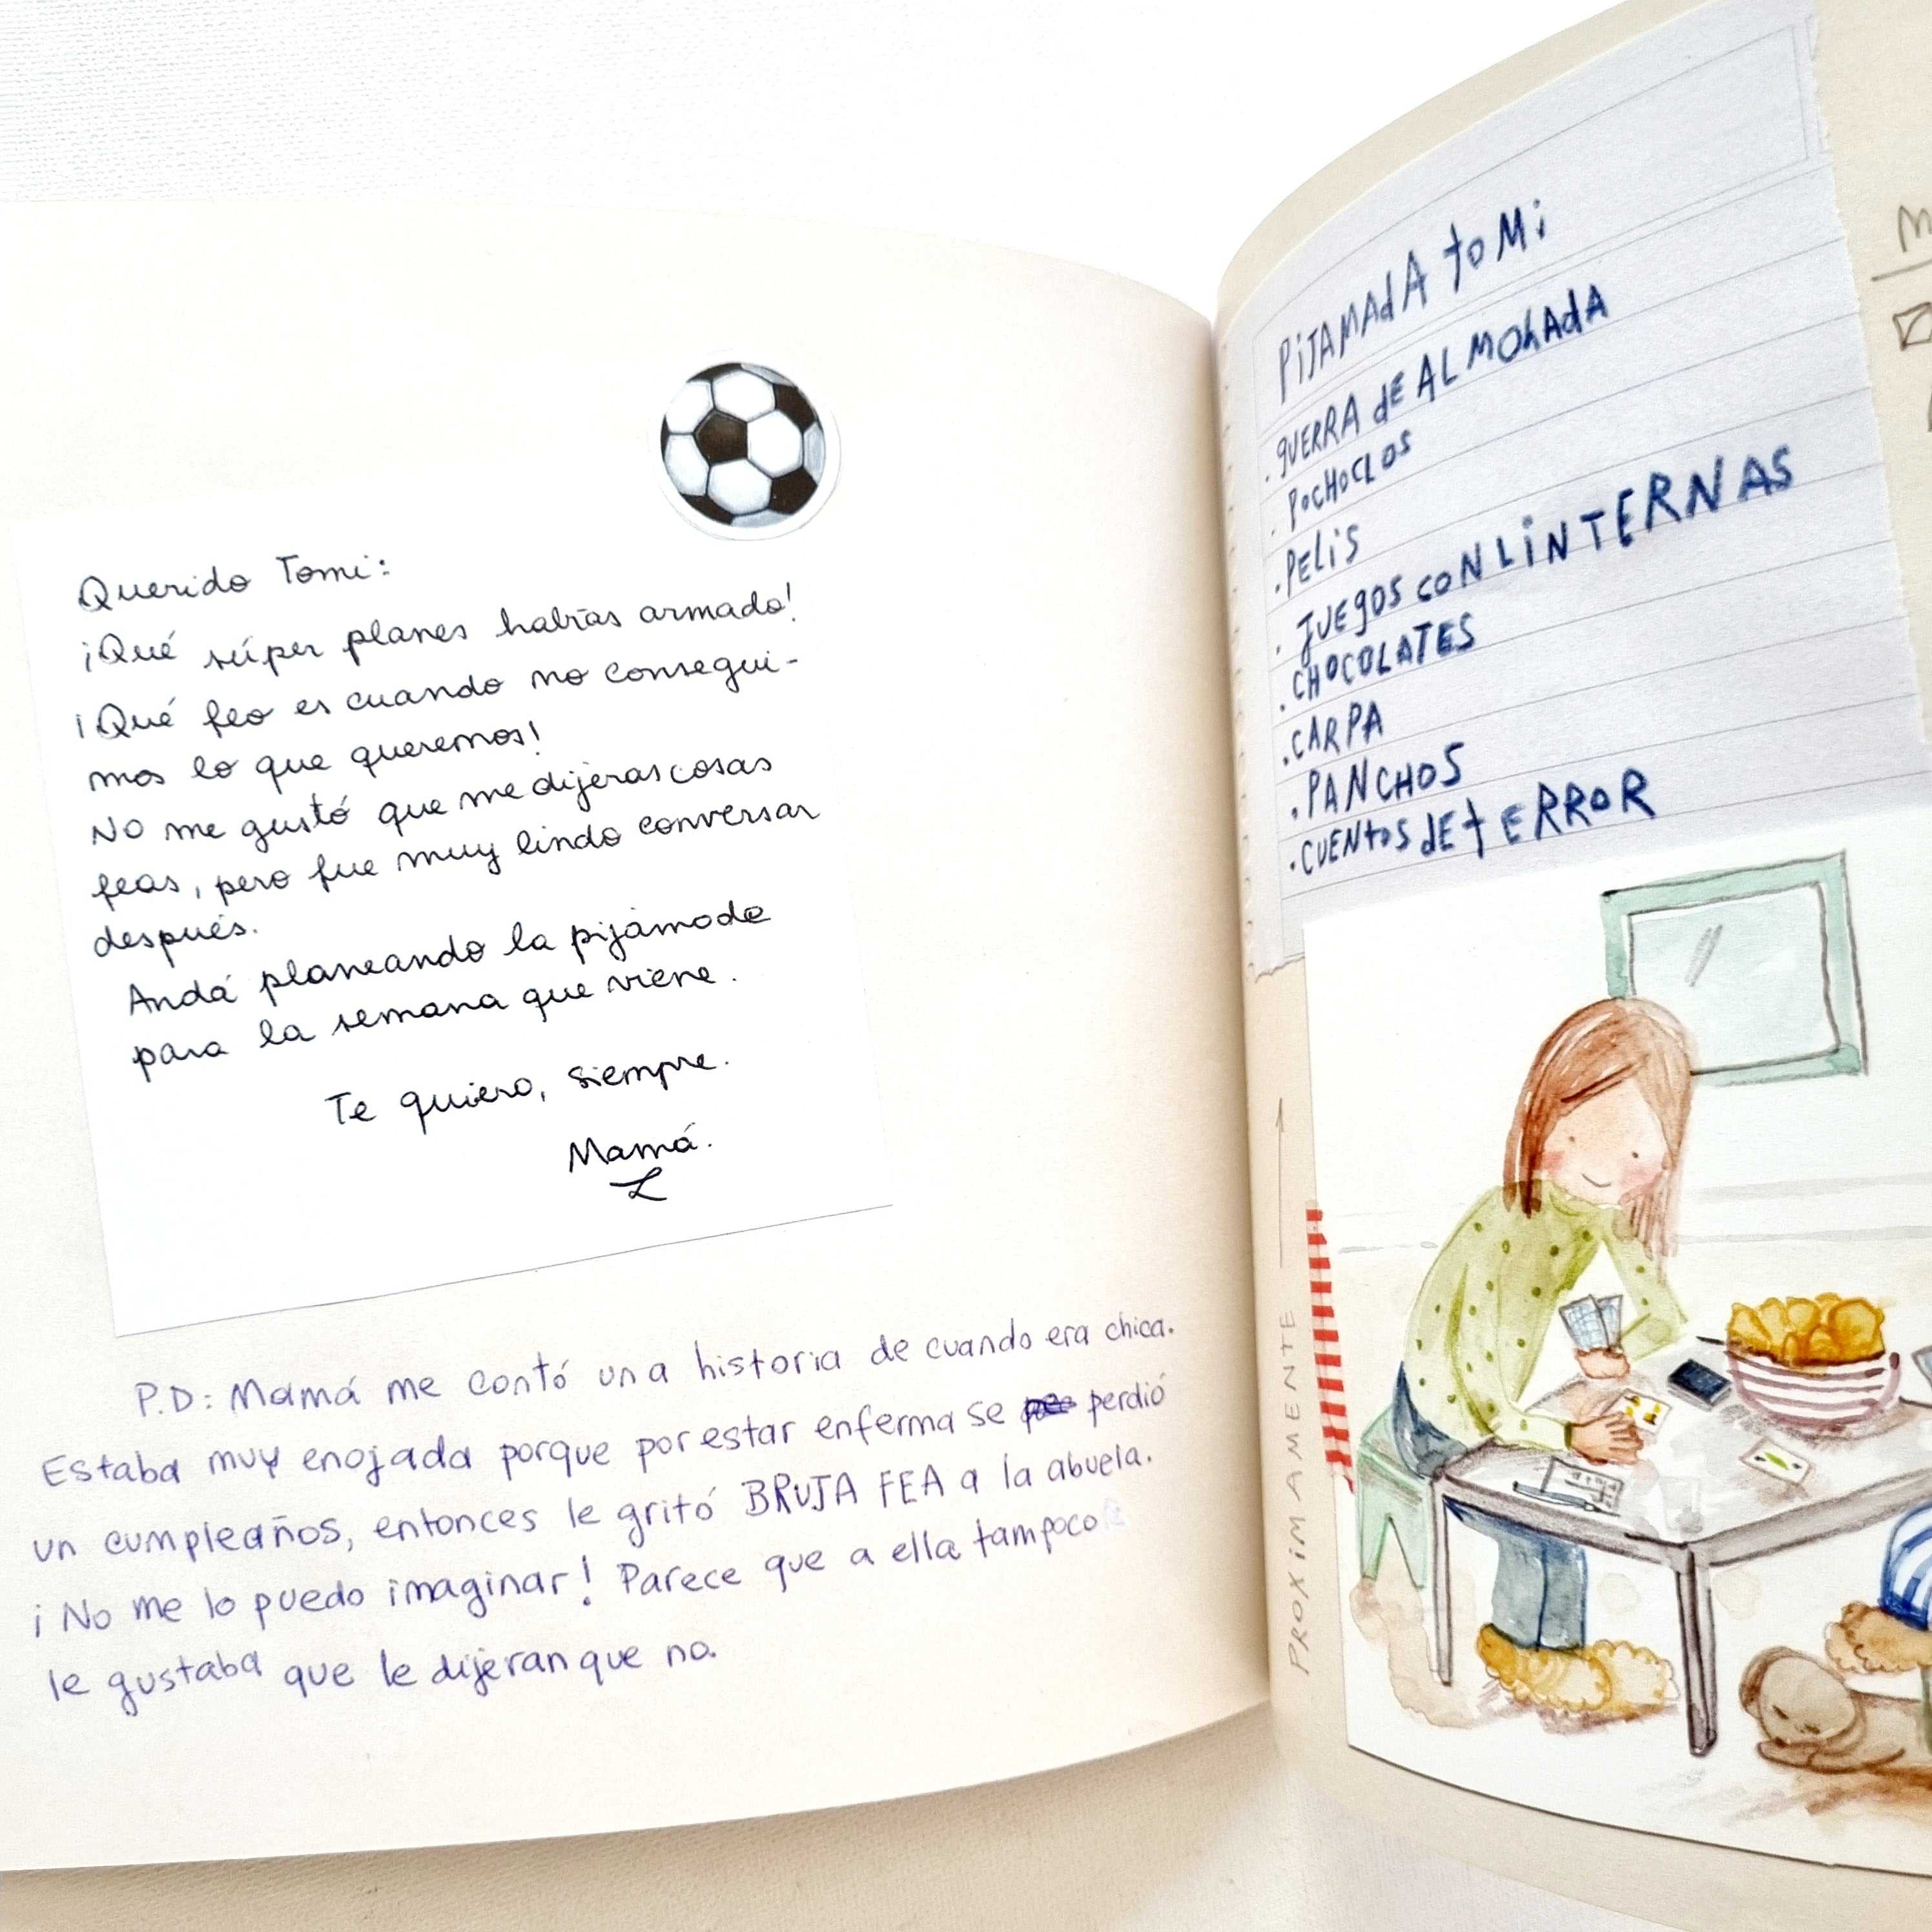 Querido Tomi:
¡Qué súper planes habías armado!
¡Qué feo es cuando no consegui-
mos lo que queremos!
No me gustó que me dijeras cosas
feas, pero fue muy lindo conversar
después.
Andá planeando la pijamada
para la semana que viene.
Te quiero, siempre.
Mamá.
P.D: Mamá me contó una historia de cuando era chica.
Estaba muy enojada porque por estar enferma se perdió
un cumpleaños, entonces le gritó BRUJA FEA a la abuela.
¡No me lo puedo imaginar! Parece que a ella tampoco
le gustaba que le dijeran que no.
PiJAMAdA toMi
. gUERRA dE ALMOhAdA
. POCHOCLOS
. PELiS
. JUEgOS CON LiNTERNAS
. CHOCOLATES
. CARPA
. PANCHOS
. CUENtOS dE tERROR
PROXIMAMENTE